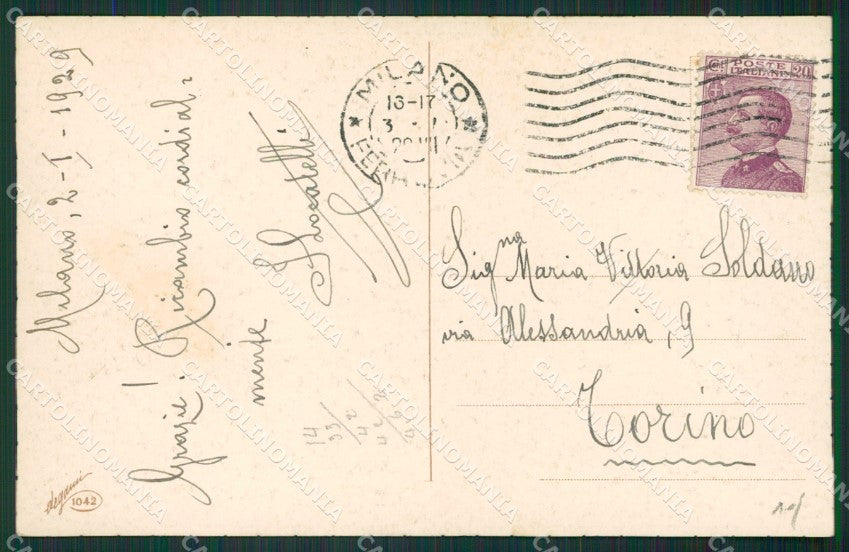 Milano, 2-I-1929
Grazie! Ricambio cordial=
mente
Locatelli
MILANO
16-17
3
FERROVIA
POSTE
ITALIANE
C. 20
Sig.na Maria Vittoria Soldano
via Alessandria, 9
Torino
degami
1042
14
33
42
CARTOLINOMANIA